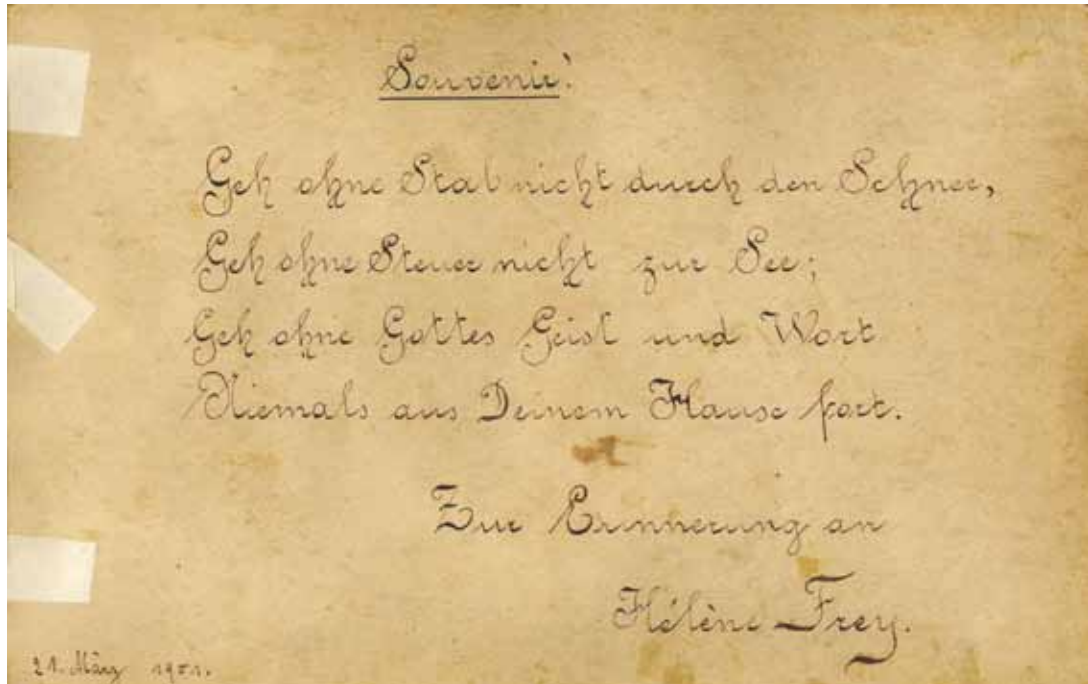 Souvenir!
Geh ohne Stab nicht durch den Schnee,
Geh ohne Steuer nicht zur See;
Geh ohne Gottes Geist und Wort
Niemals aus Deinem Hause fort.
Zur Erinnerung an
Hélène Frey.
21. März 1901.